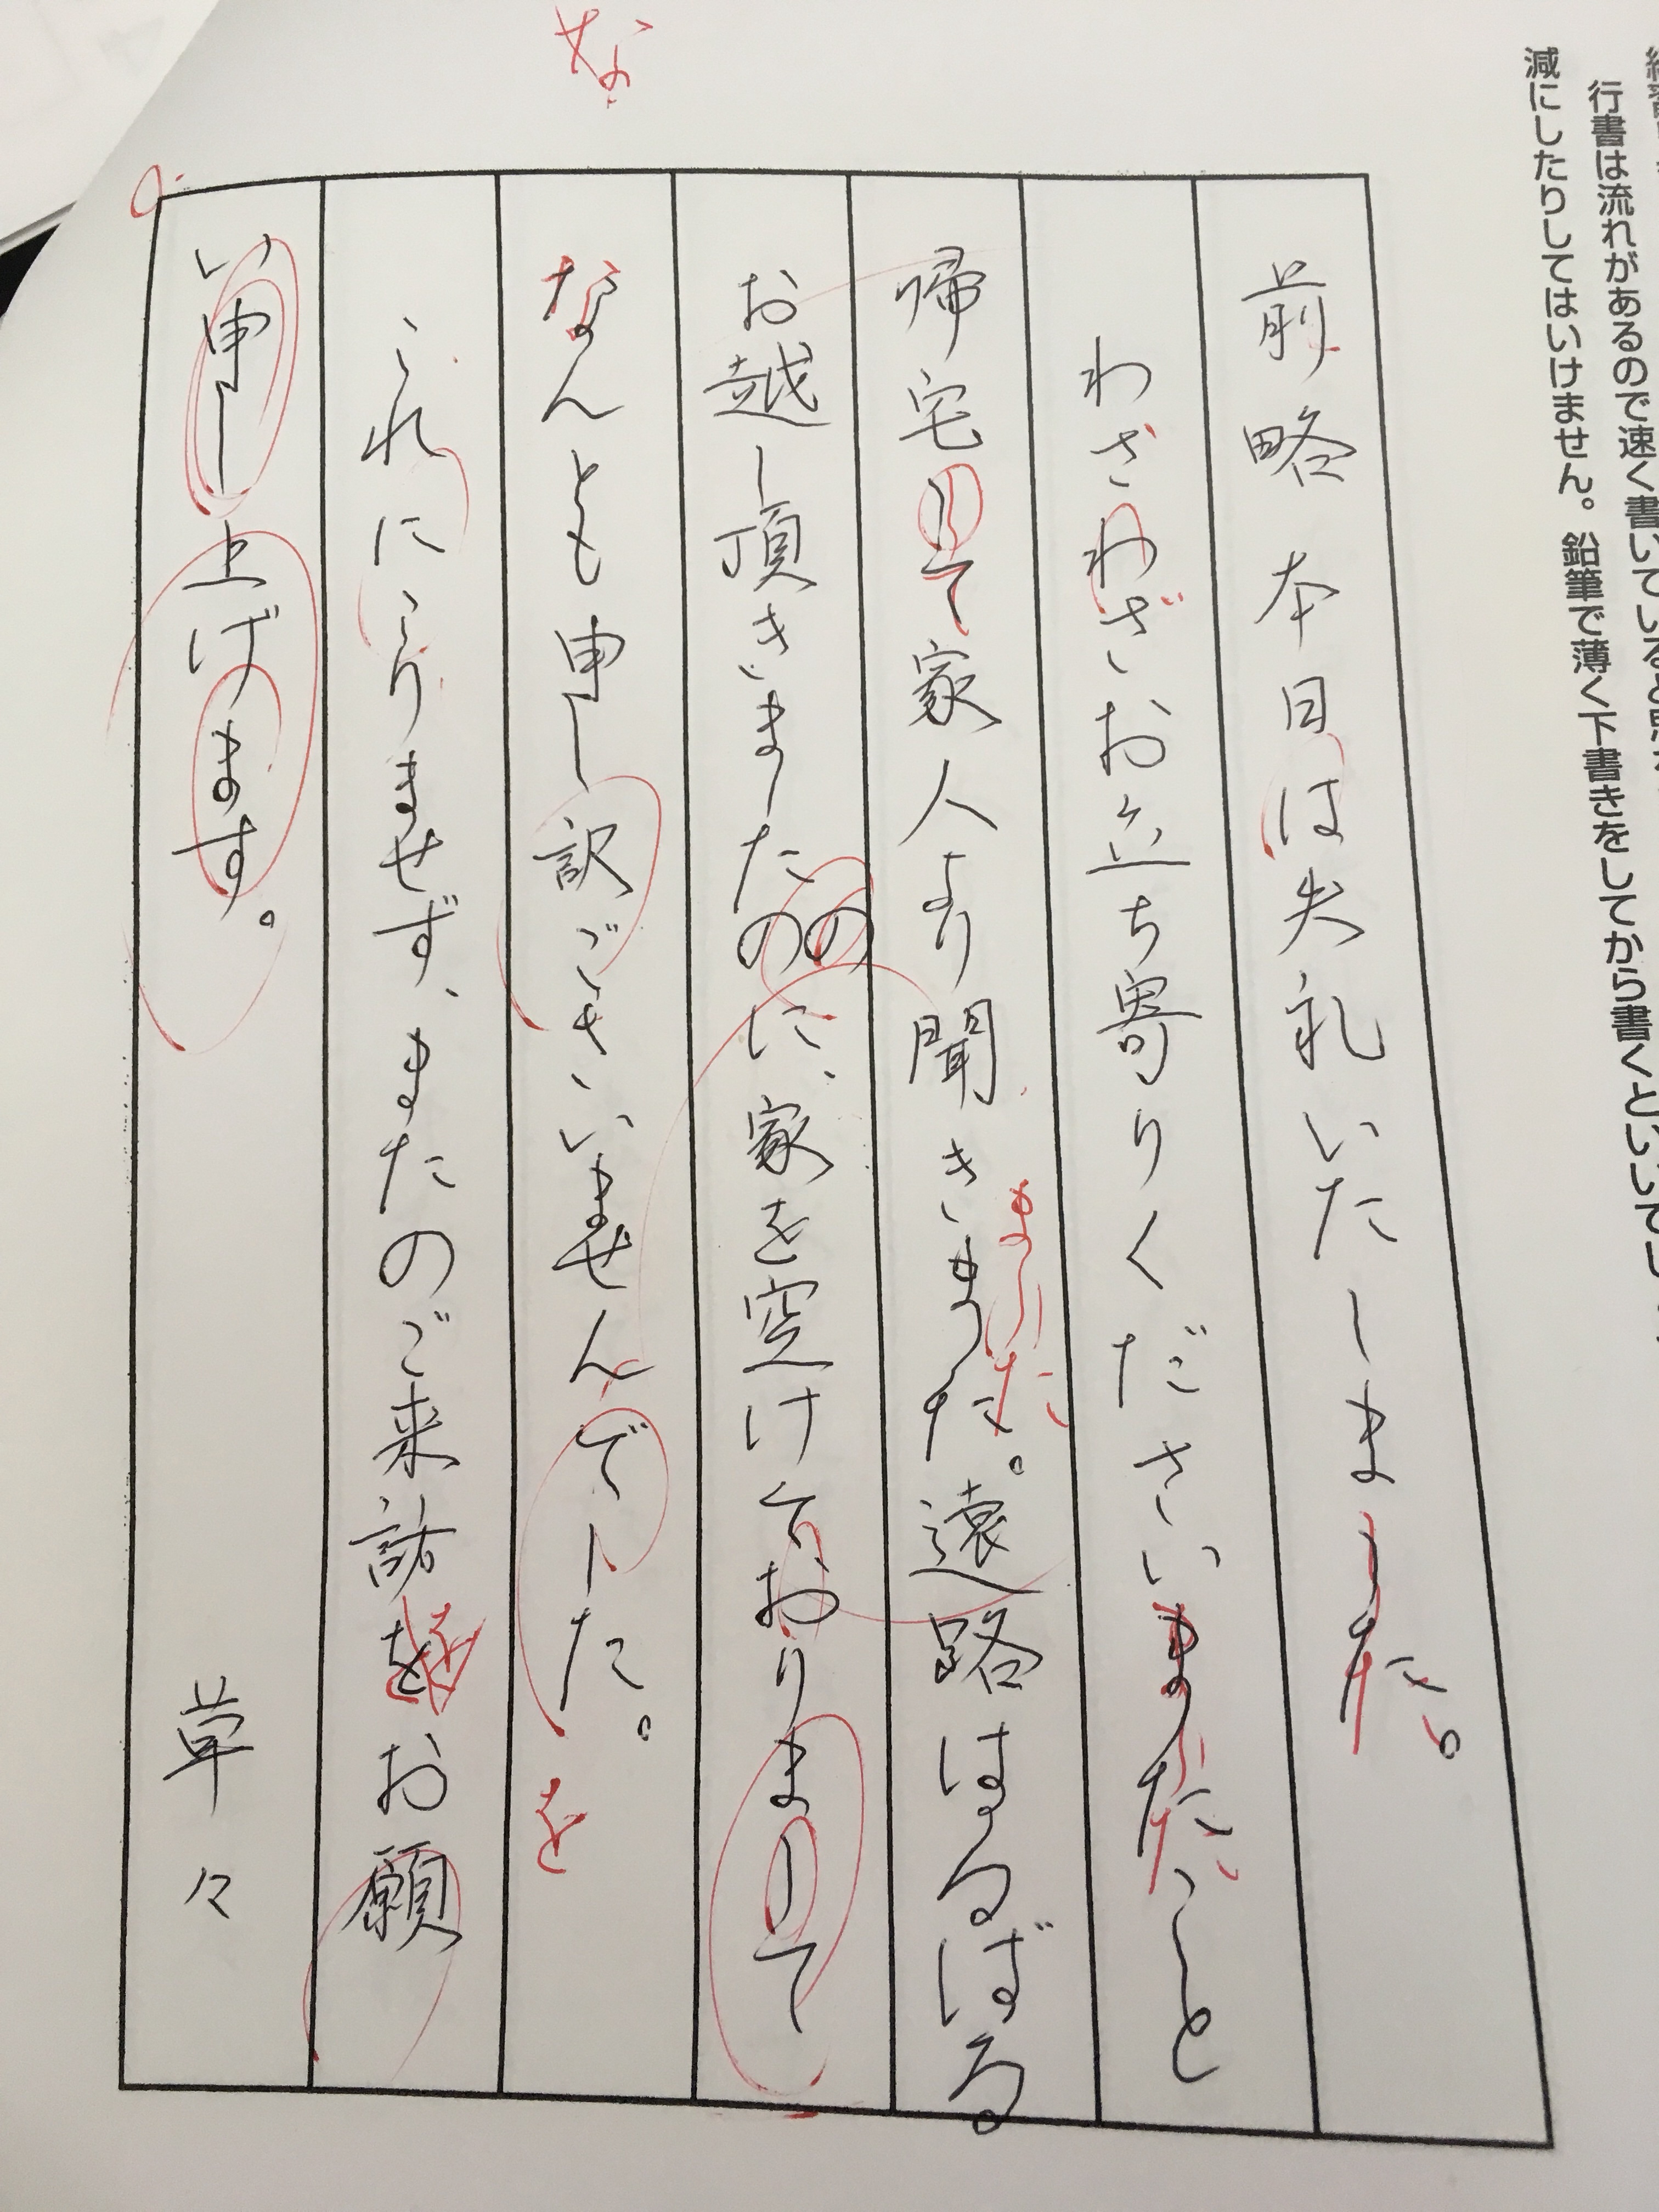 行書は流れがあるので速く書いている
減にしたりしてはいけません。鉛筆で薄く下書きをしてから書くといいでし
前略 本日は失礼いたしました。
わざわざお立ち寄りくださいましたこと
帰宅して家人より聞きました。遠路はるばる
ました
お越し頂きましたのに、家を空けておりまして
の
なんとも申し訳ございませんでした。
な
を
これにこりませず、またのご来訪をお願
い申し上げます。
草々